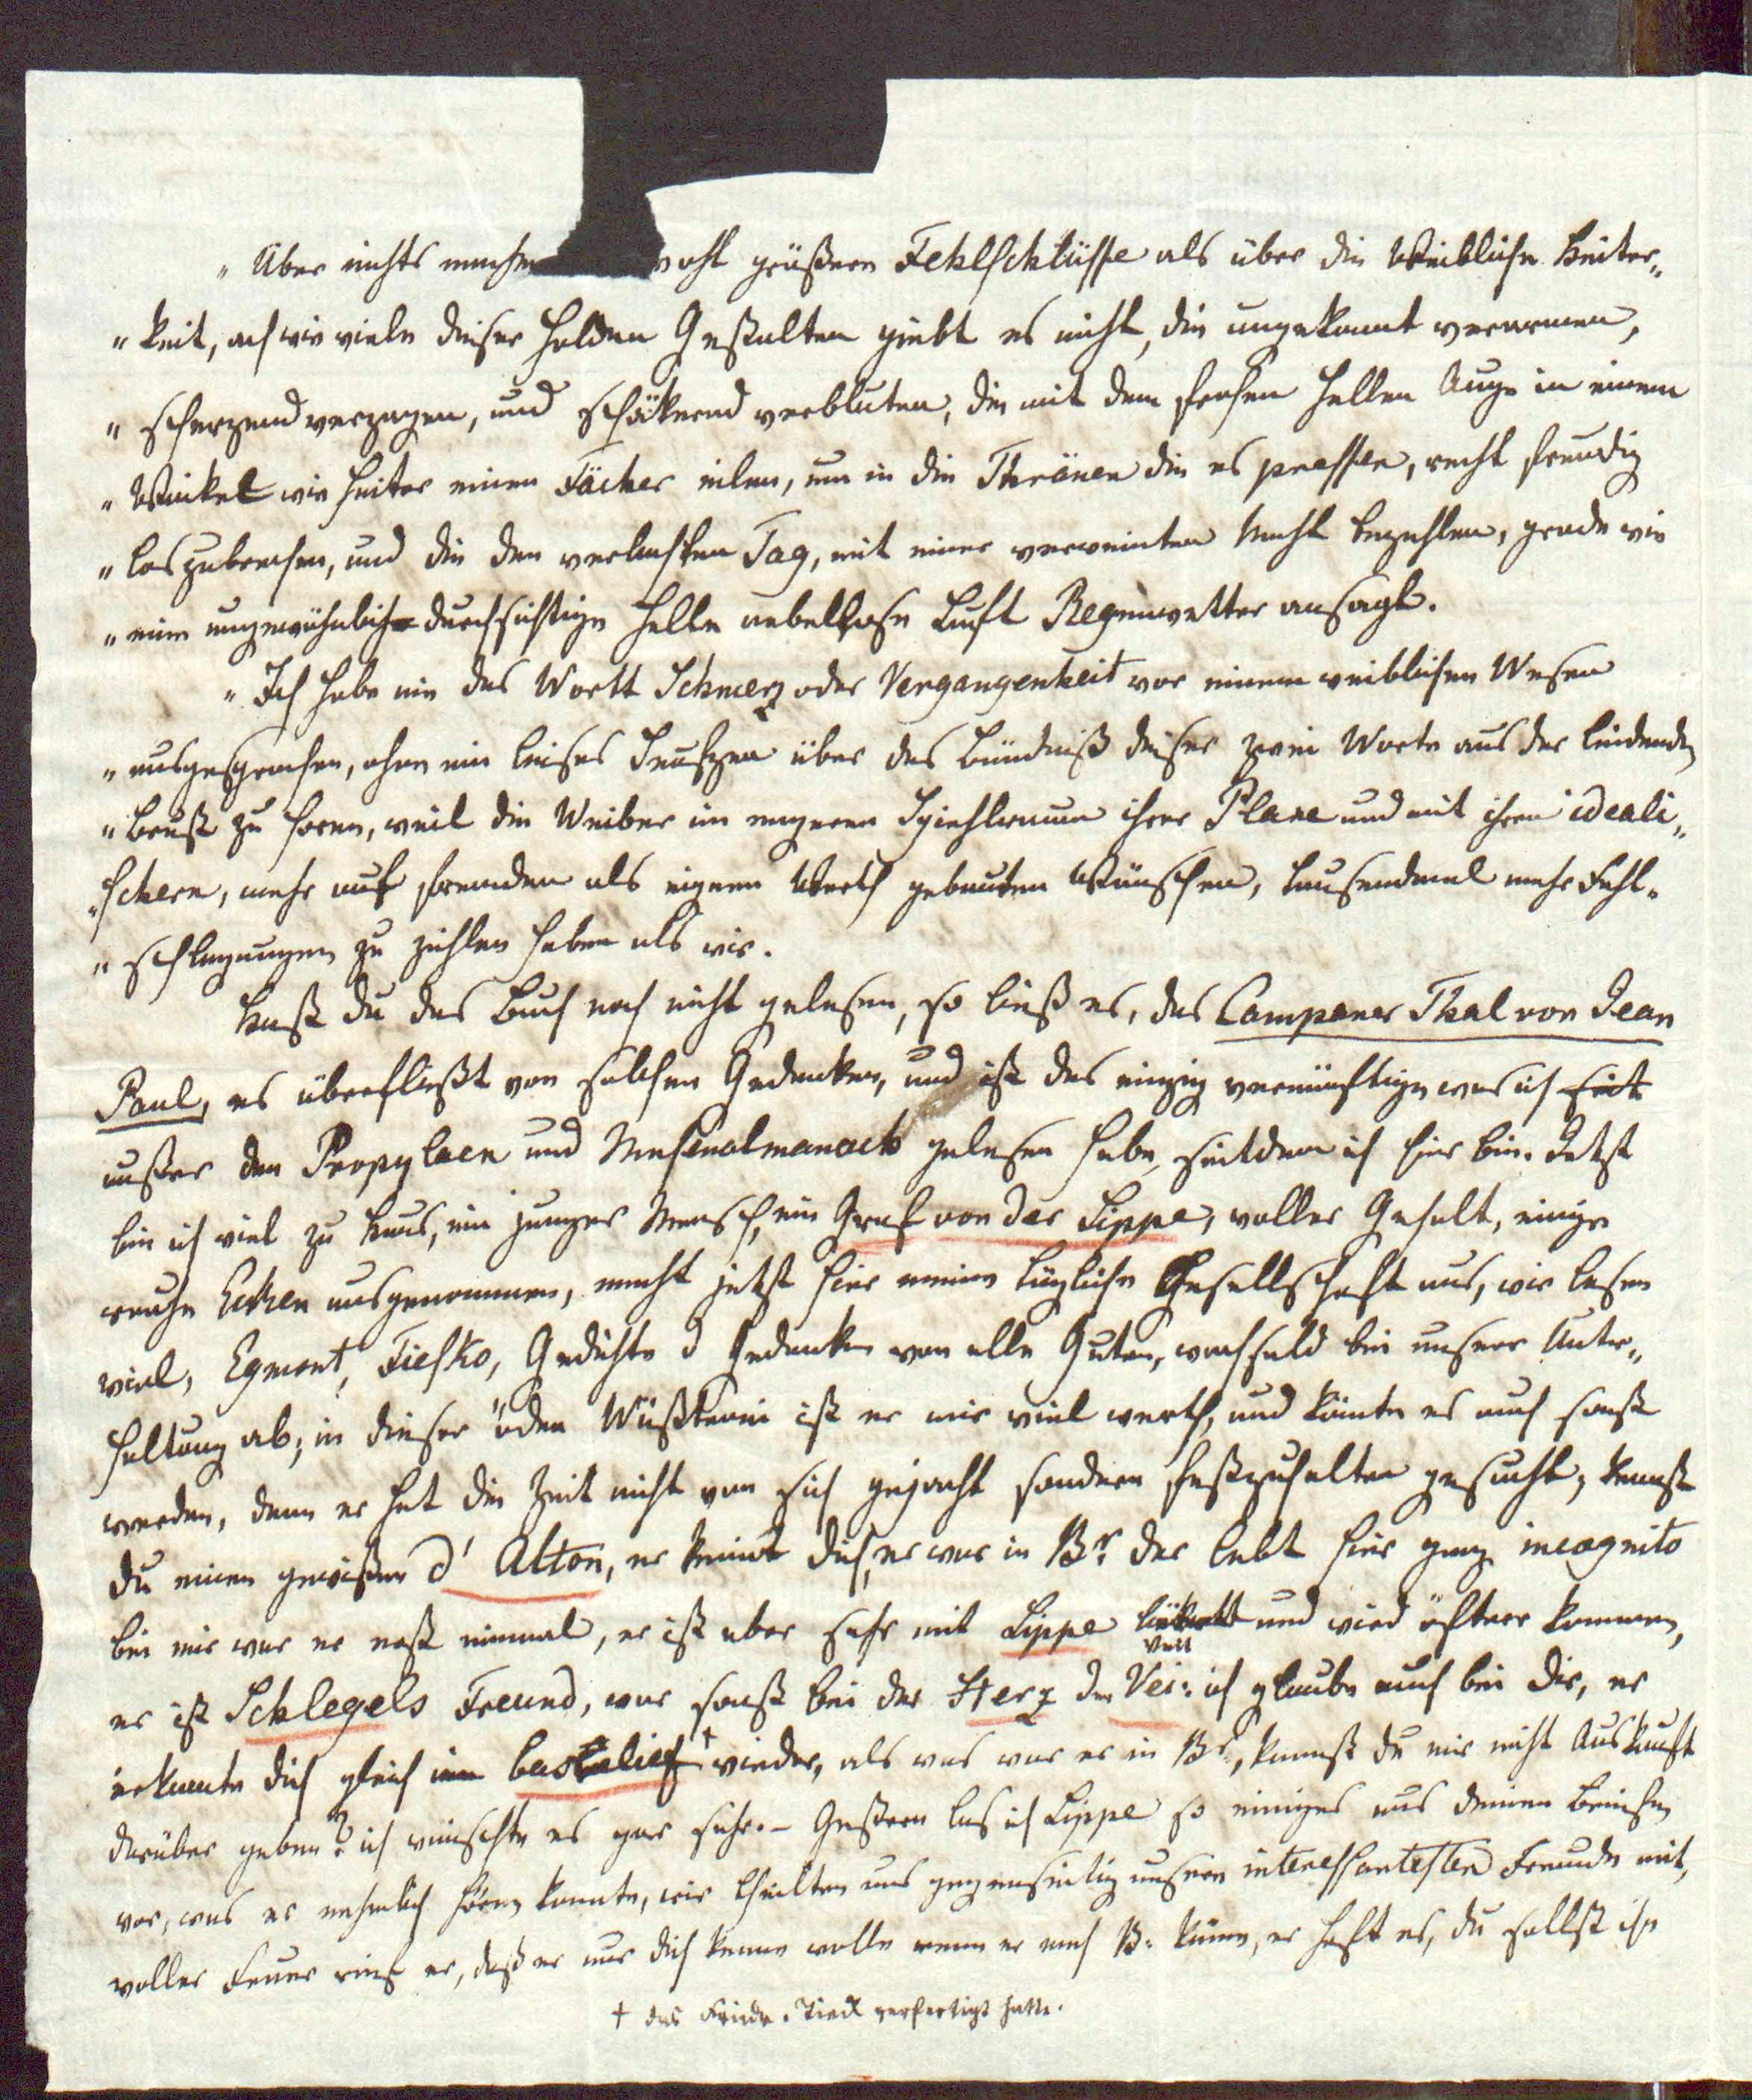 „ Über nichts machen wohl größern Fehlschlüsse als über die Weibliche Heiter„
„ keit, ach wie viele dieser holden Gestalten giebt es nicht, die ungekannt verarmen,
„ scherzend verzagen, und schäkernd verbluten, die mit dem frohen hellen Auge in einem
„ Winkel wie hinter einen Fächer eilen, um in die Thränen die es pressen, recht freudig
„ loszubrechen, und die den verlachten Tag, mit einer verweinten Nacht bezahlen, grade wie
„ eine ungewöhnlich durchsichtige helle nebellose Luft Regenwetter ansagt.
„ Ich habe nie das Wortt Schmerz oder Vergangenheit vor einem weiblichen Wesen
„ ausgesprochen, ohne ein leises Seufzen über das Bündniß dieser zwei Worte aus der leidenden
„ Brust zu hören, weil die Weiber im engeren Spiehlraum ihrer Plane und mit ihren ideali„
„ schern, mehr auf fremden als eignen Werth gebauten Wünschen, tausendmal mehr Fehl„
„ schlagungen zu zählen haben als wir.
Hast du das Buch noch nicht gelesen, so ließ es, das Campaner Thal von Jean
Paul, es überfließt von solchen Gedanken, und ist das einzig vernünftige was ich seit
außer den Propylaen und Musenalmanack gelesen habe, seitdem ich hier bin. Jetzt
bin ich viel zu Haus, ein junger Mensch, ein Graf von der Lippe, voller Gehalt, einige
rauhe Ecken ausgenommen, macht jetzt hier meine tägliche Gesellschaft aus, wir lesen
viel, Egmont, Fiesko, Gedichte d Gedanken von alle Guten, wechseld bei unsrer Unter„
haltung ab; in dieser öden Wüstenei ist er mir viel werth, und könnte es auch sonst
werden, denn er hat die Zeit nicht von sich gejacht sondern festzuhalten gesucht; kennst
du einen gewißen d' Alton, er kennt dich, er war in Br. der lebt hier ganz incognito
bei mir war er erst einmal, er ist aber sehr mit Lippe liirt und wird öfterer kommen,
er ist Schlegels Freund, war sonst bei der Herz der Veit: ich glaube auch bei dir, er
erkannte dich gleich im basrelief † wieder, als was war er in Br, kannst du mir nicht Auskunft
darüber geben? ich wünschte es gar sehr. – Gestern las ich Lippe so einiges aus deinen Briefen
vor, was er nehmlich hören konnte, wir theilten uns gegenseitig unsere interessantesten Freunde mit,
voller Feuer rief er, daß er nur dich kenne wolle wenn er nach B. käme, er hoft es, du sollst ihn
† das Friedr. Tieck verfertigt hatte.